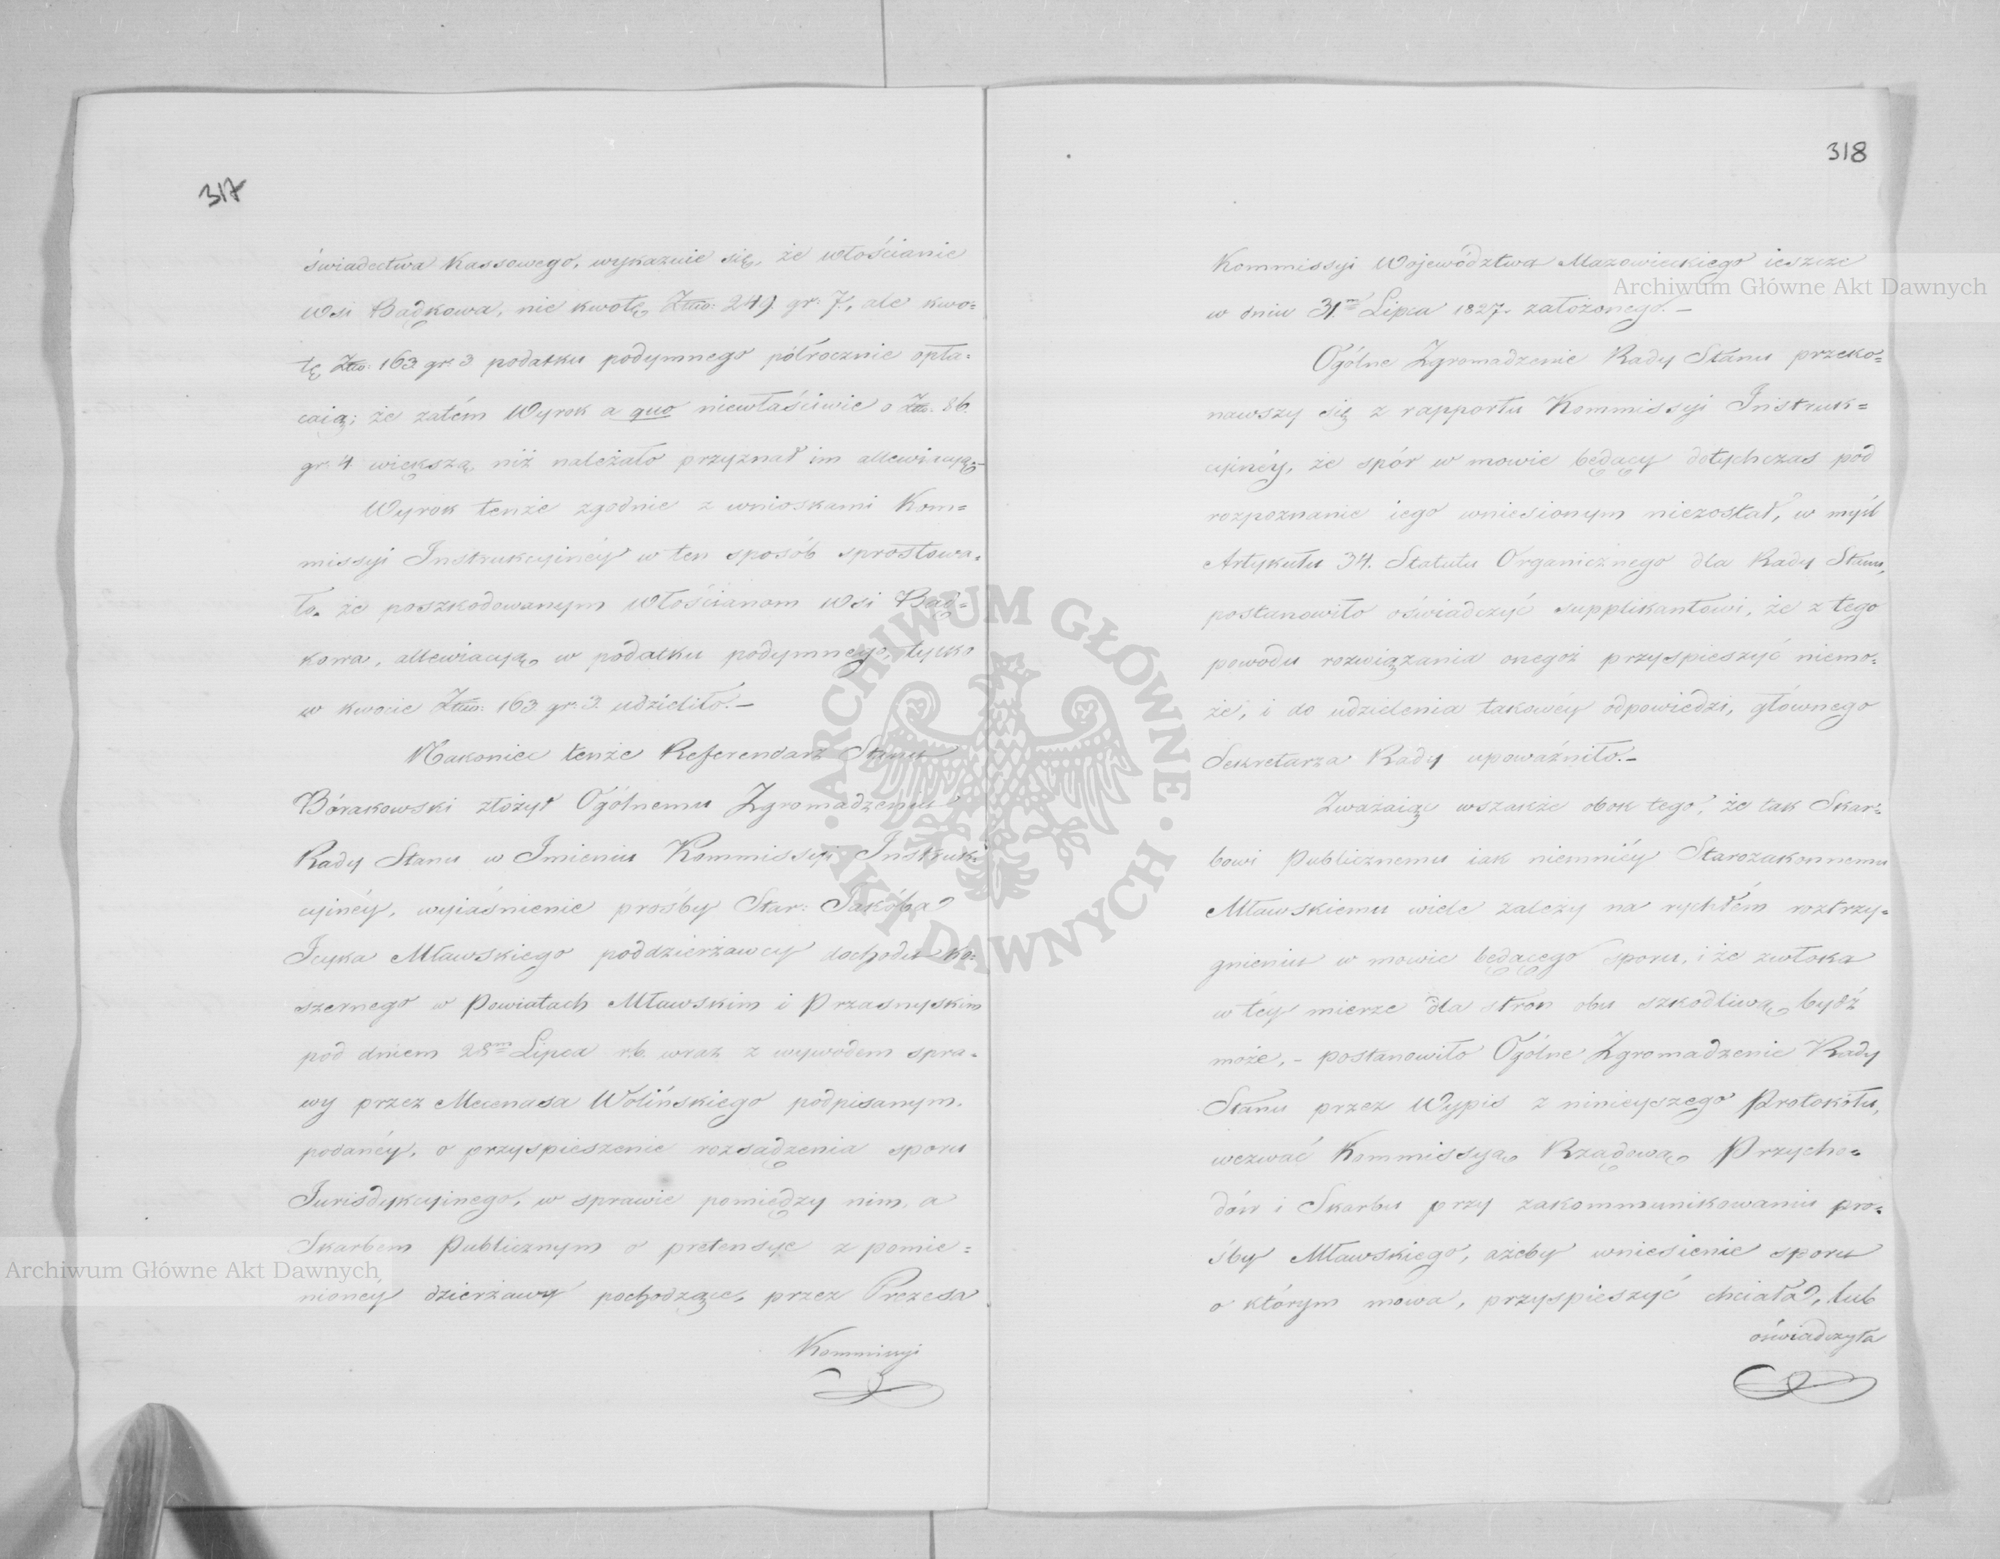 317
świadectwa Kassowego, wykazuie się, że włościanie
wsi Bądkowa, nie kwotę Złło: 249. gr: 7, ale kwo=
tę Złło: 163 gr: 3 podatku podymnego półrocznie opła=
caią; że zatém Wyrok a quo niewłaściwie o Złło: 86.
gr: 4 większą, niż należało przyznał im allewiacyją.
Wyrok tenże zgodnie z wnioskami Kom=
missyi Instrukcyinéy w ten sposób sprostowa=
ło, że poszkodowanym Włościanom Wsi Bąd=
kowa, allewiacyją w podatku podymnego, tylko
w kwocie Złło: 163 gr: 3. udzieliło. –
Nakoniec tenże Referendarz Stanu
Bórakowski złożył Ogólnemu Zgromadzeniu
Rady Stanu w Imieniu Kommissyi Instruk=
cyinéy, wyiaśnienie prośby Star: Jakóba
Icyka Mławskiego poddzierżawcy dochodu ko=
szernego w Powiatach Mławskim i Przasnyskim
pod dniem 28m Lipca r.b. wraz z wywodem spra=
wy przez Mecenasa Wolińskiego podpisanym,
podanéy, o przyspieszenie rozsądzenia sporu
Jurisdykcyinego, w sprawie pomiędzy nim, a
Skarbem Publicznym o pretensye z pomie=
nionéy dzierżawy pochodzące, przez Prezesa
Kommissyi
318
Kommissyi Województwa Mazowieckiego ieszcze
w dniu 31m Lipca 1827. założonego. –
Ogólne Zgromadzenie Rady Stanu przeko=
nawszy się z rapportu Kommissyi Instruk=
cyinéy, że spór w mowie będący dotychczas pod
rozpoznanie iego wniesionym niezostał, w myśl
Artykułu 34. Statutu Organicznego dla Rady Stanu,
postanowiło oświadczyć supplikantowi, że z tego
powodu rozwiązania onegoż przyspieszyć niemo=
że, i do udzielenia takowéy odpowiedzi, głównego
Sekretarza Rady upoważniło. –
Zważaiąc wszakże obok tego, że tak Skar=
bowi Publicznemu iak niemniéy Starozakonnemu
Mławskiemu wiele zależy na rychłém roztrzy=
gnieniu w mowie będącego sporu, i że zwłoka
w téy mierze dla stron obu szkodliwą bydź
może, – postanowiło Ogólne Zgromadzenie Rady
Stanu przez Wypis z ninieyszego Protokółu,
wezwać Kommissyą Rządową Przycho=
dów i Skarbu przy zakommunikowaniu pro=
śby Mławskiego, ażeby wniesienie sporu
o którym mowa, przyspieszyć chciała, lub
oświadczyła
Archiwum Główne Akt Dawnych
Archiwum Główne Akt Dawnych
ARCHIWUM GŁÓWNE · AKT DAWNYCH ·